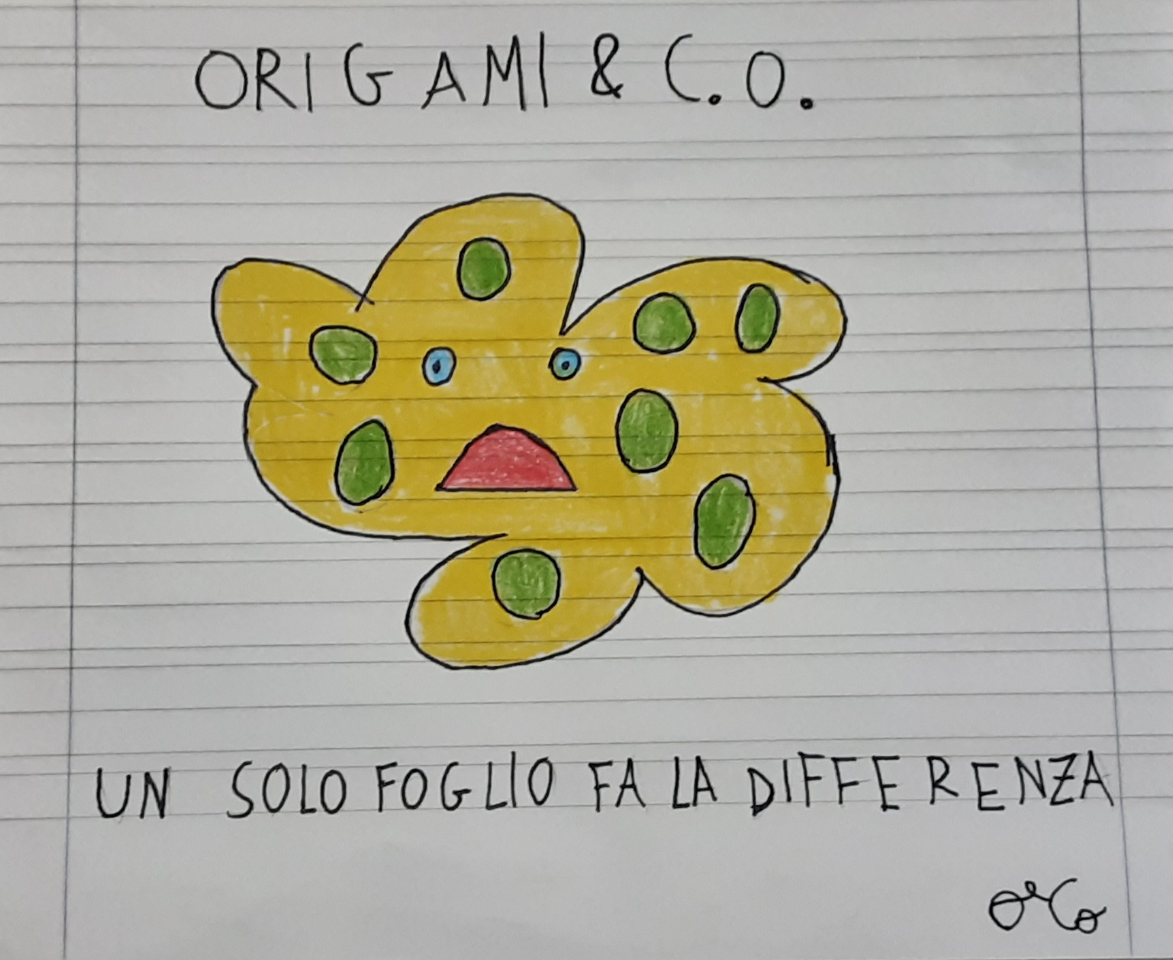 ORIGAMI & C.O.
UN SOLO FOGLIO FA LA DIFFERENZA